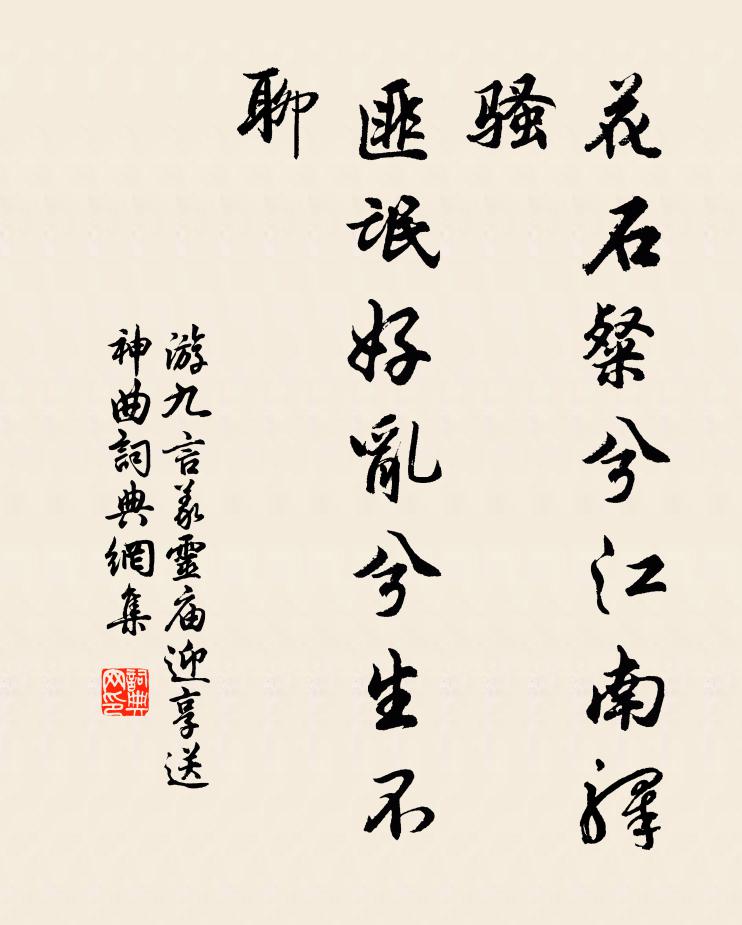 花石粲兮江南驛
騷
匪氓好亂兮生不
聊
游九言義靈庙迎享送
神曲詞典網集
詞典
网印